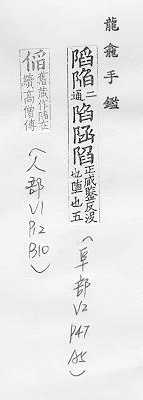 龍龕手鑑
陷陷二通陷陷正咸監反沒也墜也五
(阜部 V2 P47 A5)
舊藏作陷在續高僧傳
(人部 V1 P12 B10)